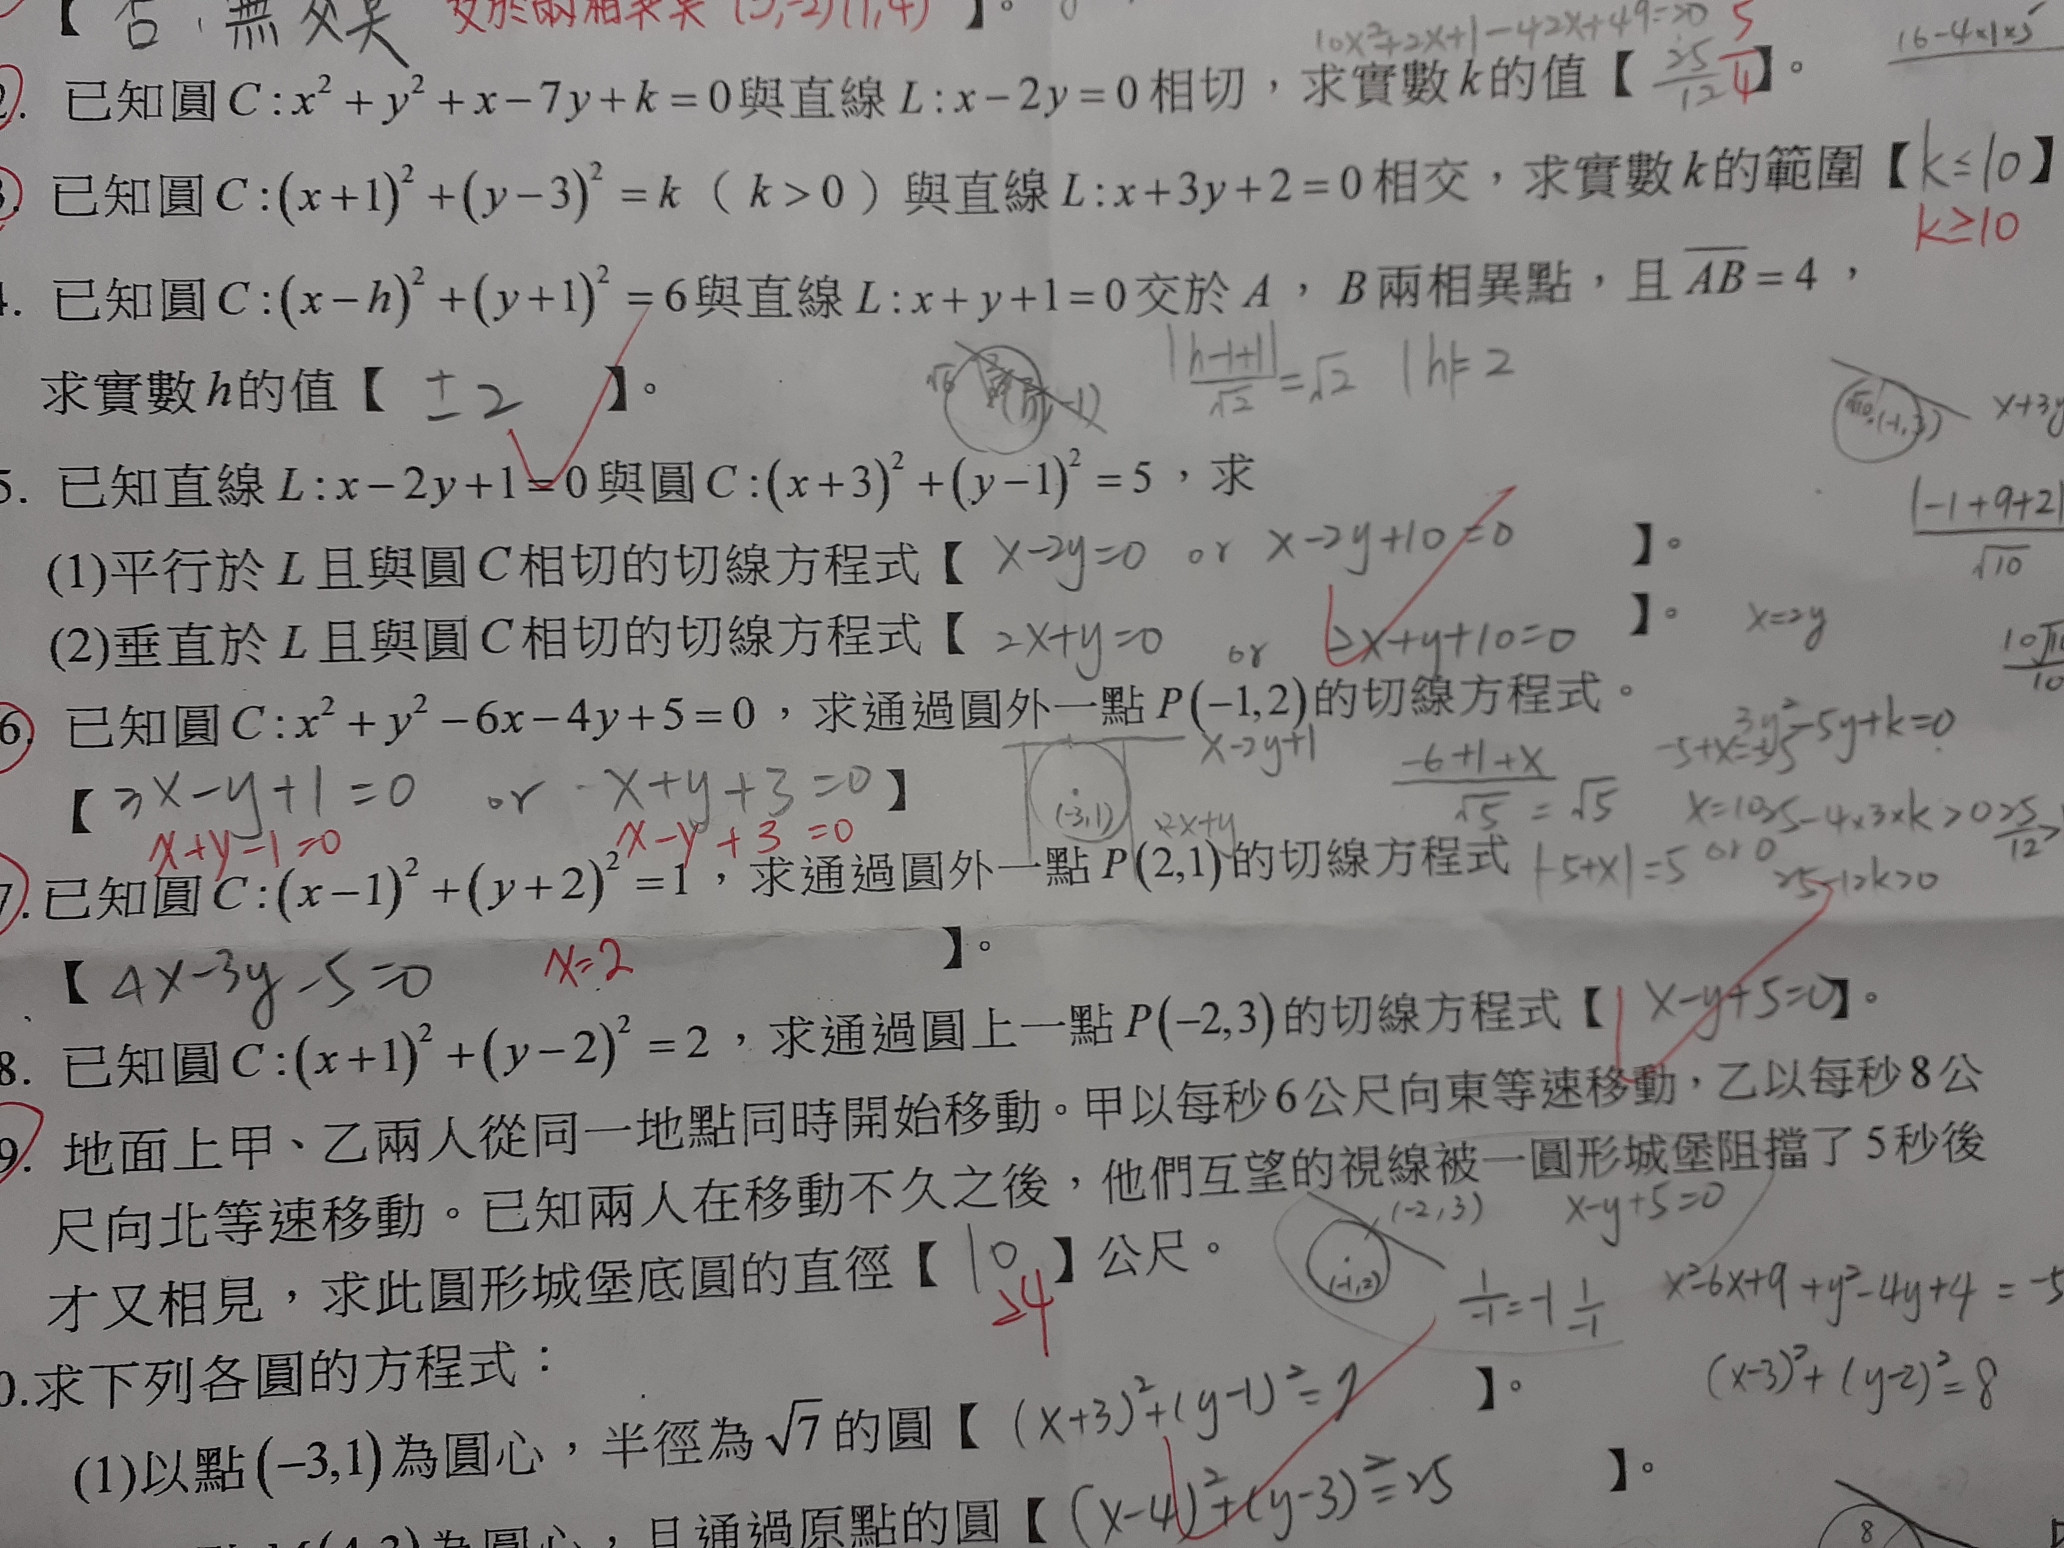 【 否，無交點 交於兩相異點 】。
10x²+2x+1-42x+49=20
16-4×1×5
2. 已知圓 C:x²+y²+x-7y+k=0與直線 L:x-2y=0相切，求實數k的值【 25/12 5/4 】。
3. 已知圓 C:(x+1)²+(y-3)²=k（k>0）與直線 L:x+3y+2=0相交，求實數k的範圍【k≤10】
k≥10
4. 已知圓 C:(x-h)²+(y+1)²=6與直線 L:x+y+1=0交於 A，B兩相異點，且 AB=4，
求實數h的值【 ±2 】。
|h-1+1|/√2=√2 |h|=2
√10 (-1,3) x+3y
5. 已知直線 L:x-2y+1=0與圓 C:(x+3)²+(y-1)²=5，求
|-1+9+2|/√10
(1)平行於 L 且與圓 C 相切的切線方程式【 x-2y=0 or x-2y+10=0 】。
(2)垂直於 L 且與圓 C 相切的切線方程式【 2x+y=0 or 2x+y+10=0 】。
x=2y
6. 已知圓 C:x²+y²-6x-4y+5=0，求通過圓外一點 P(-1,2)的切線方程式。
x-2y+1
3y²-5y+k=0
【 3x-y+1=0 or -x+y+3=0 】
x+y-1=0 x-y+3=0
(-3,1) 2x+y
-6+1+x/√5=√5
|-5+x|=5
25-12k>0
7. 已知圓 C:(x-1)²+(y+2)²=1，求通過圓外一點 P(2,1)的切線方程式
【 4x-3y-5=0 x=2 】。
8. 已知圓 C:(x+1)²+(y-2)²=2，求通過圓上一點 P(-2,3)的切線方程式【 x-y+5=0】。
9. 地面上甲、乙兩人從同一地點同時開始移動。甲以每秒6公尺向東等速移動，乙以每秒8公
尺向北等速移動。已知兩人在移動不久之後，他們互望的視線被一圓形城堡阻擋了5秒後
才又相見，求此圓形城堡底圓的直徑【 10 】公尺。
24
(-2,3) x-y+5=0
(-1,2)
1/-1=-1 1/-1
x²-6x+9+y²-4y+4=-5
(x-3)²+(y-2)²=8
0.求下列各圓的方程式：
(1)以點(-3,1)為圓心，半徑為√7的圓【 (x+3)²+(y-1)²=7 】。
為圓心，且通過原點的圓【 (x-4)²+(y-3)²=25 】。
8